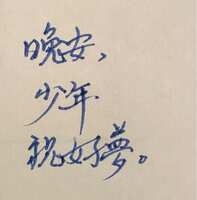 晚安，
少年.
祝好夢。